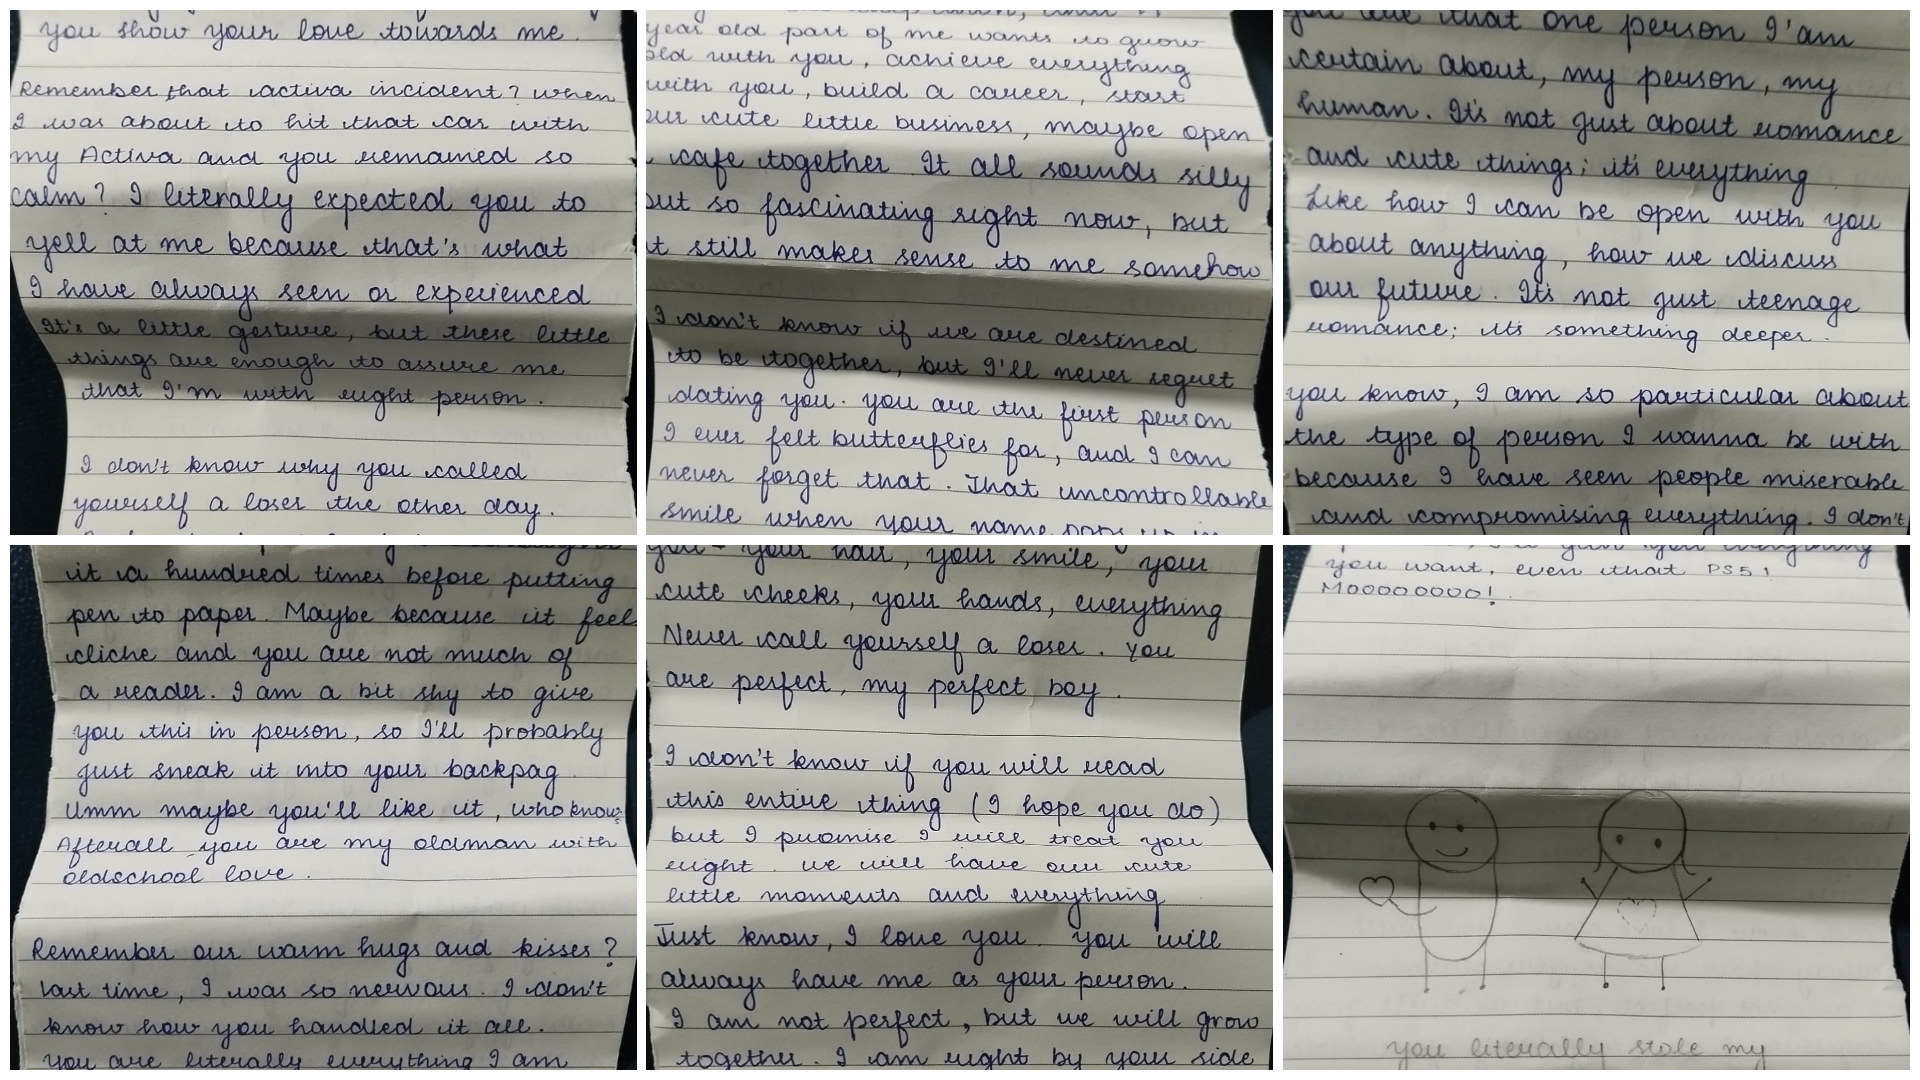 you show your love towards me.
Remember that activa incident? when
I was about to hit that car with
my Activa and you remained so
calm? I literally expected you to
yell at me because that's what
I have always seen or experienced
It's a little gesture, but these little
things are enough to assure me
that I'm with right person.
I don't know why you called
yourself a loser the other day.
year old part of me wants to grow
old with you, achieve everything
with you, build a career, start
our cute little business, maybe open
cafe together It all sounds silly
but so fascinating right now, but
it still makes sense to me somehow
I don't know if we are destined
to be together, but I'll never regret
dating you. you are the first person
I ever felt butterflies for, and I can
never forget that. That uncontrollable
smile when your name pops up in
you are that one person I'am
certain about, my person, my
human. It's not just about romance
and cute things; it's everything
Like how I can be open with you
about anything, how we discuss
our future. It's not just teenage
romance; it's something deeper.
you know, I am so particular about
the type of person I wanna be with
because I have seen people miserable
and compromising everything. I don't
it a hundred times before putting
pen to paper. Maybe because it feel
cliche and you are not much of
a reader. I am a bit shy to give
you this in person, so I'll probably
just sneak it into your backpag
Umm maybe you'll like it, who knows
Afterall you are my oldman with
oldschool love.
Remember our warm hugs and kisses?
last time, I was so nervous. I don't
know how you handled it all.
you are literally everything I am
you - your hair, your smile, your
cute cheeks, your hands, everything
Never call yourself a loser. You
are perfect, my perfect boy.
I don't know if you will read
this entire thing (I hope you do)
but I promise I will treat you
right. we will have our cute
little moments and everything
Just know, I love you. you will
always have me as your person.
I am not perfect, but we will grow
together. I am right by your side
you everything
you want, even that PS5!
Mooooooooo!
you literally stole my